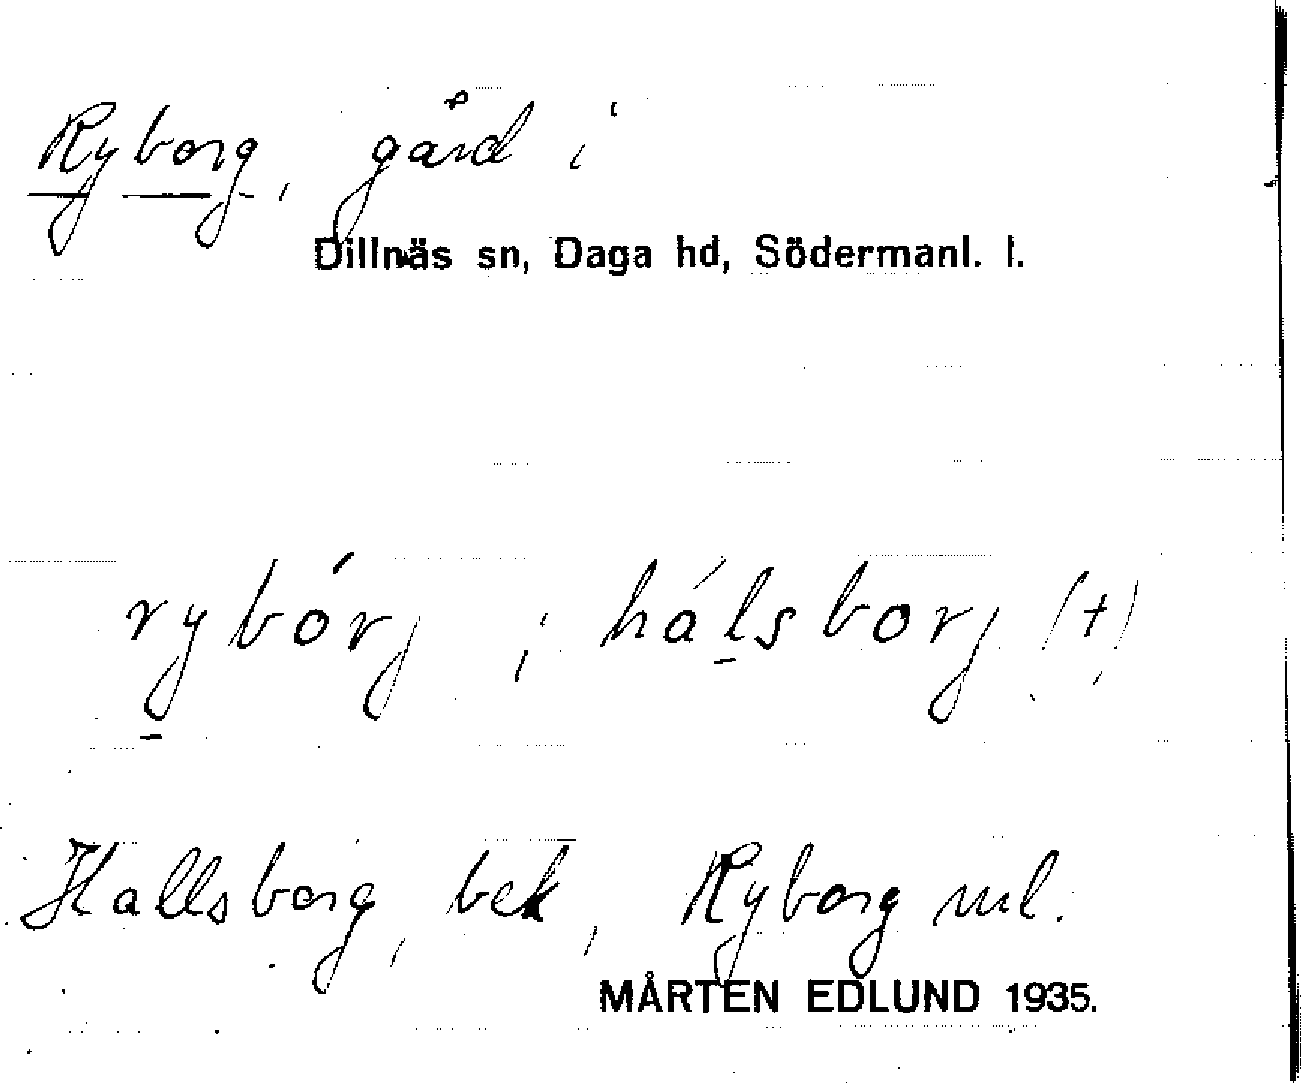 Ryborg, gård i
Dillnäs sn, Daga hd, Södermanl. l.
rybórj ; hálsborj (+)
Hallsborg, bek, Ryborg ml.
MÅRTEN EDLUND 1935.